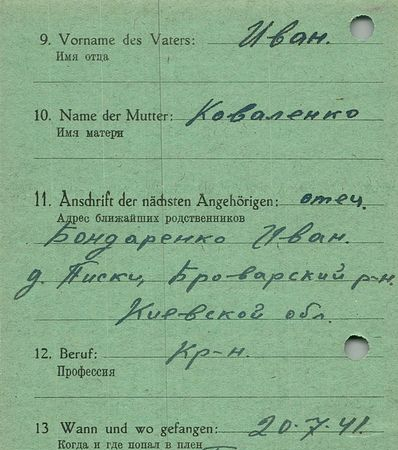 9. Vorname des Vaters: Иван.
Имя отца
10. Name der Mutter: Коваленко
Имя матери
11. Anschrift der nächsten Angehörigen: отец.
Адрес ближайших родственников
Бондаренко Иван.
д. Писки, Броварский р-н.
Киевской обл.
12. Beruf: Кр-н.
Профессия
13 Wann und wo gefangen: 20.7.41.
Когда и где попал в плен